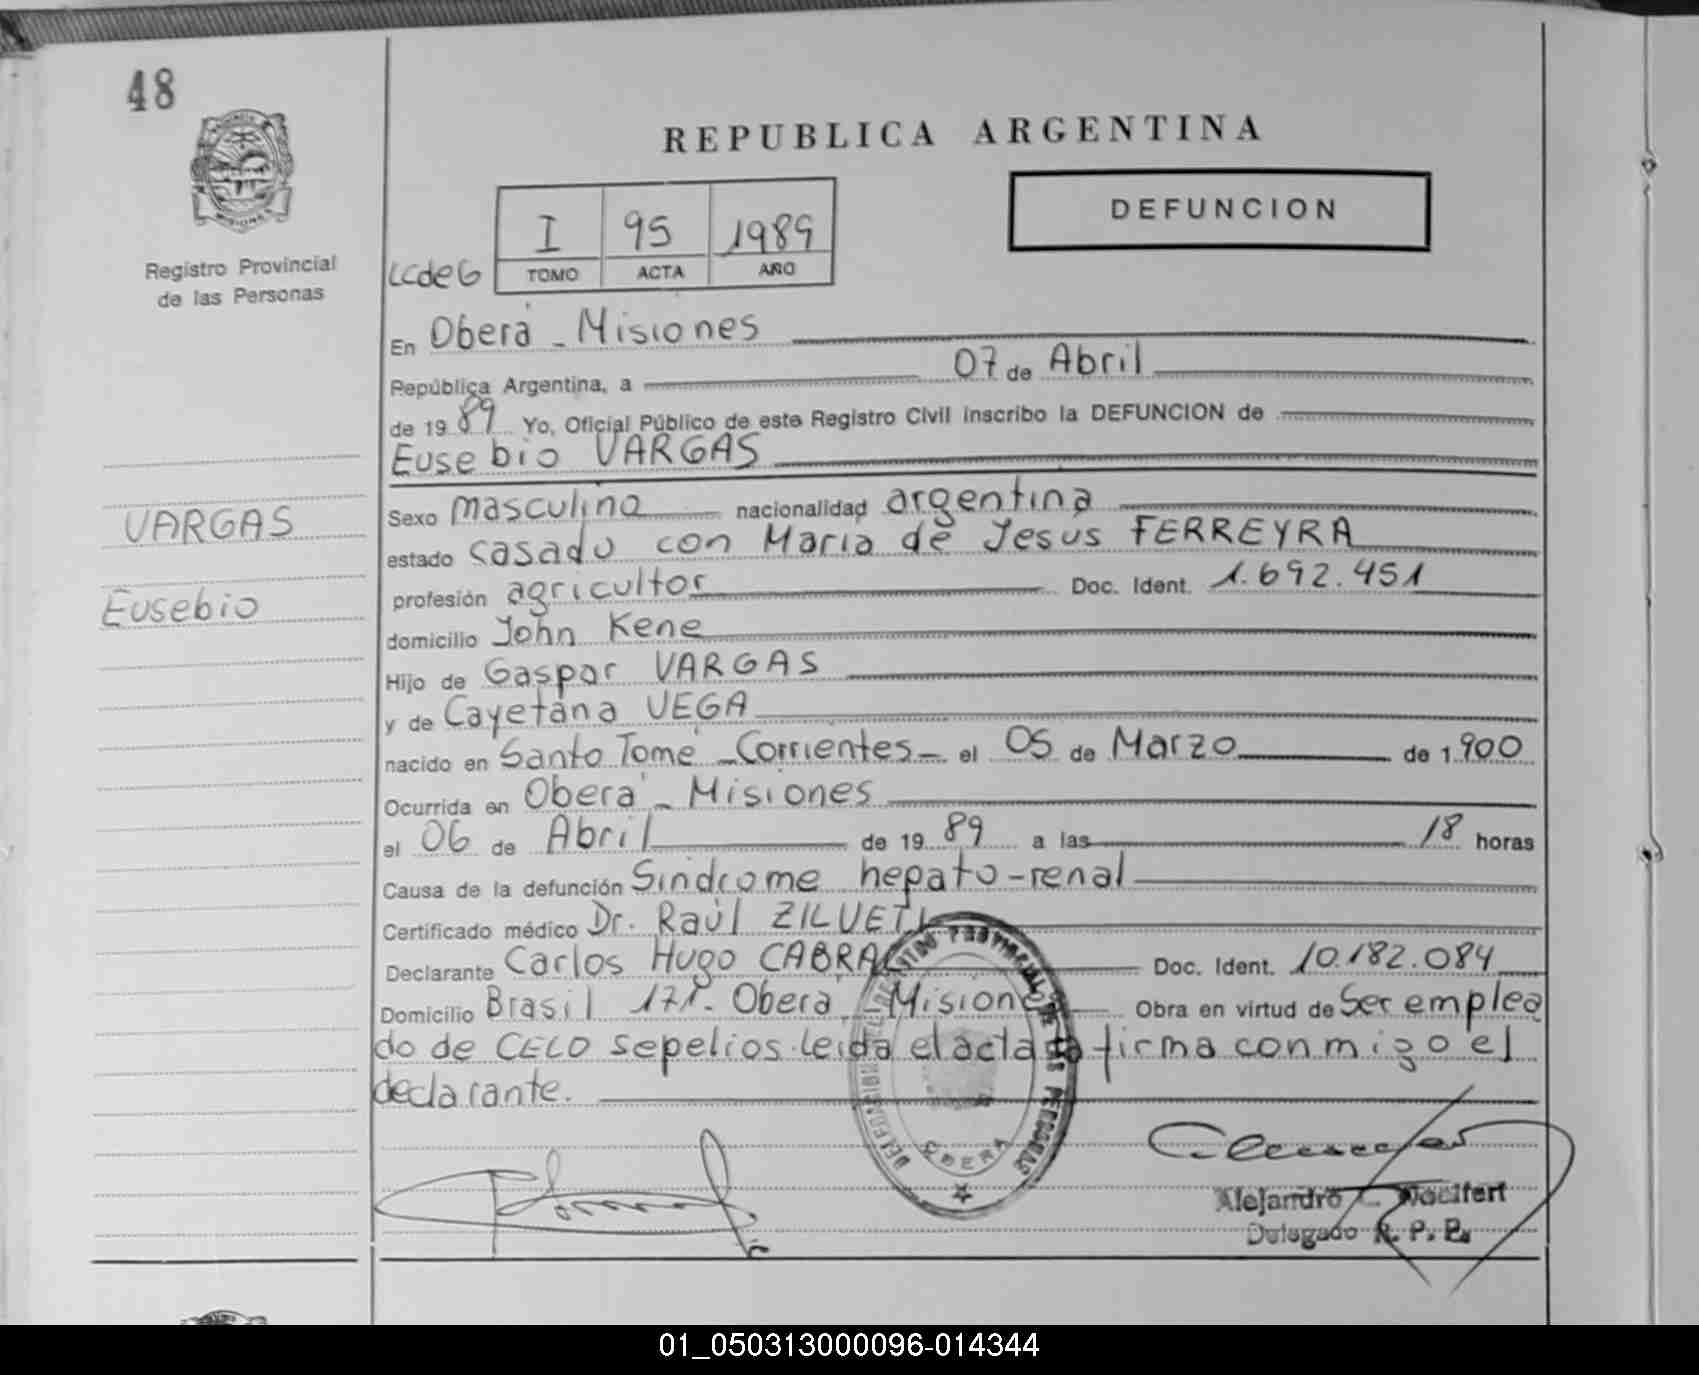 48
MISIONES
Registro Provincial
de las Personas
VARGAS
Eusebio
REPUBLICA ARGENTINA
I 95 1989
LCdeG TOMO ACTA AÑO
DEFUNCION
En Oberá - Misiones
República Argentina, a 07 de Abril
de 1989 Yo, Oficial Público de este Registro Civil inscribo la DEFUNCION de
Eusebio VARGAS
Sexo masculino nacionalidad argentina
estado casado con María de Jesús FERREYRA
profesión agricultor Doc. Ident. 1.692.451
domicilio John Kene
Hijo de Gaspar VARGAS
y de Cayetana VEGA
nacido en Santo Tomé - Corrientes - el 05 de Marzo de 1.900
Ocurrida en Oberá - Misiones
el 06 de Abril de 19 89 a las 18 horas
Causa de la defunción Síndrome hepato-renal
Certificado médico Dr. Raúl ZILVETI
Declarante Carlos Hugo CABRAL Doc. Ident. 10.182.084
Domicilio Brasil 171. Oberá - Misiones Obra en virtud de Ser emplea
do de CELO sepelios. leída el acta la firma conmigo el
declarante.
DELEGACION DEL REGISTRO PROVINCIAL DE LAS PERSONAS
OBERA
Alejandro
Delegado R. P. P.
01_050313000096-014344